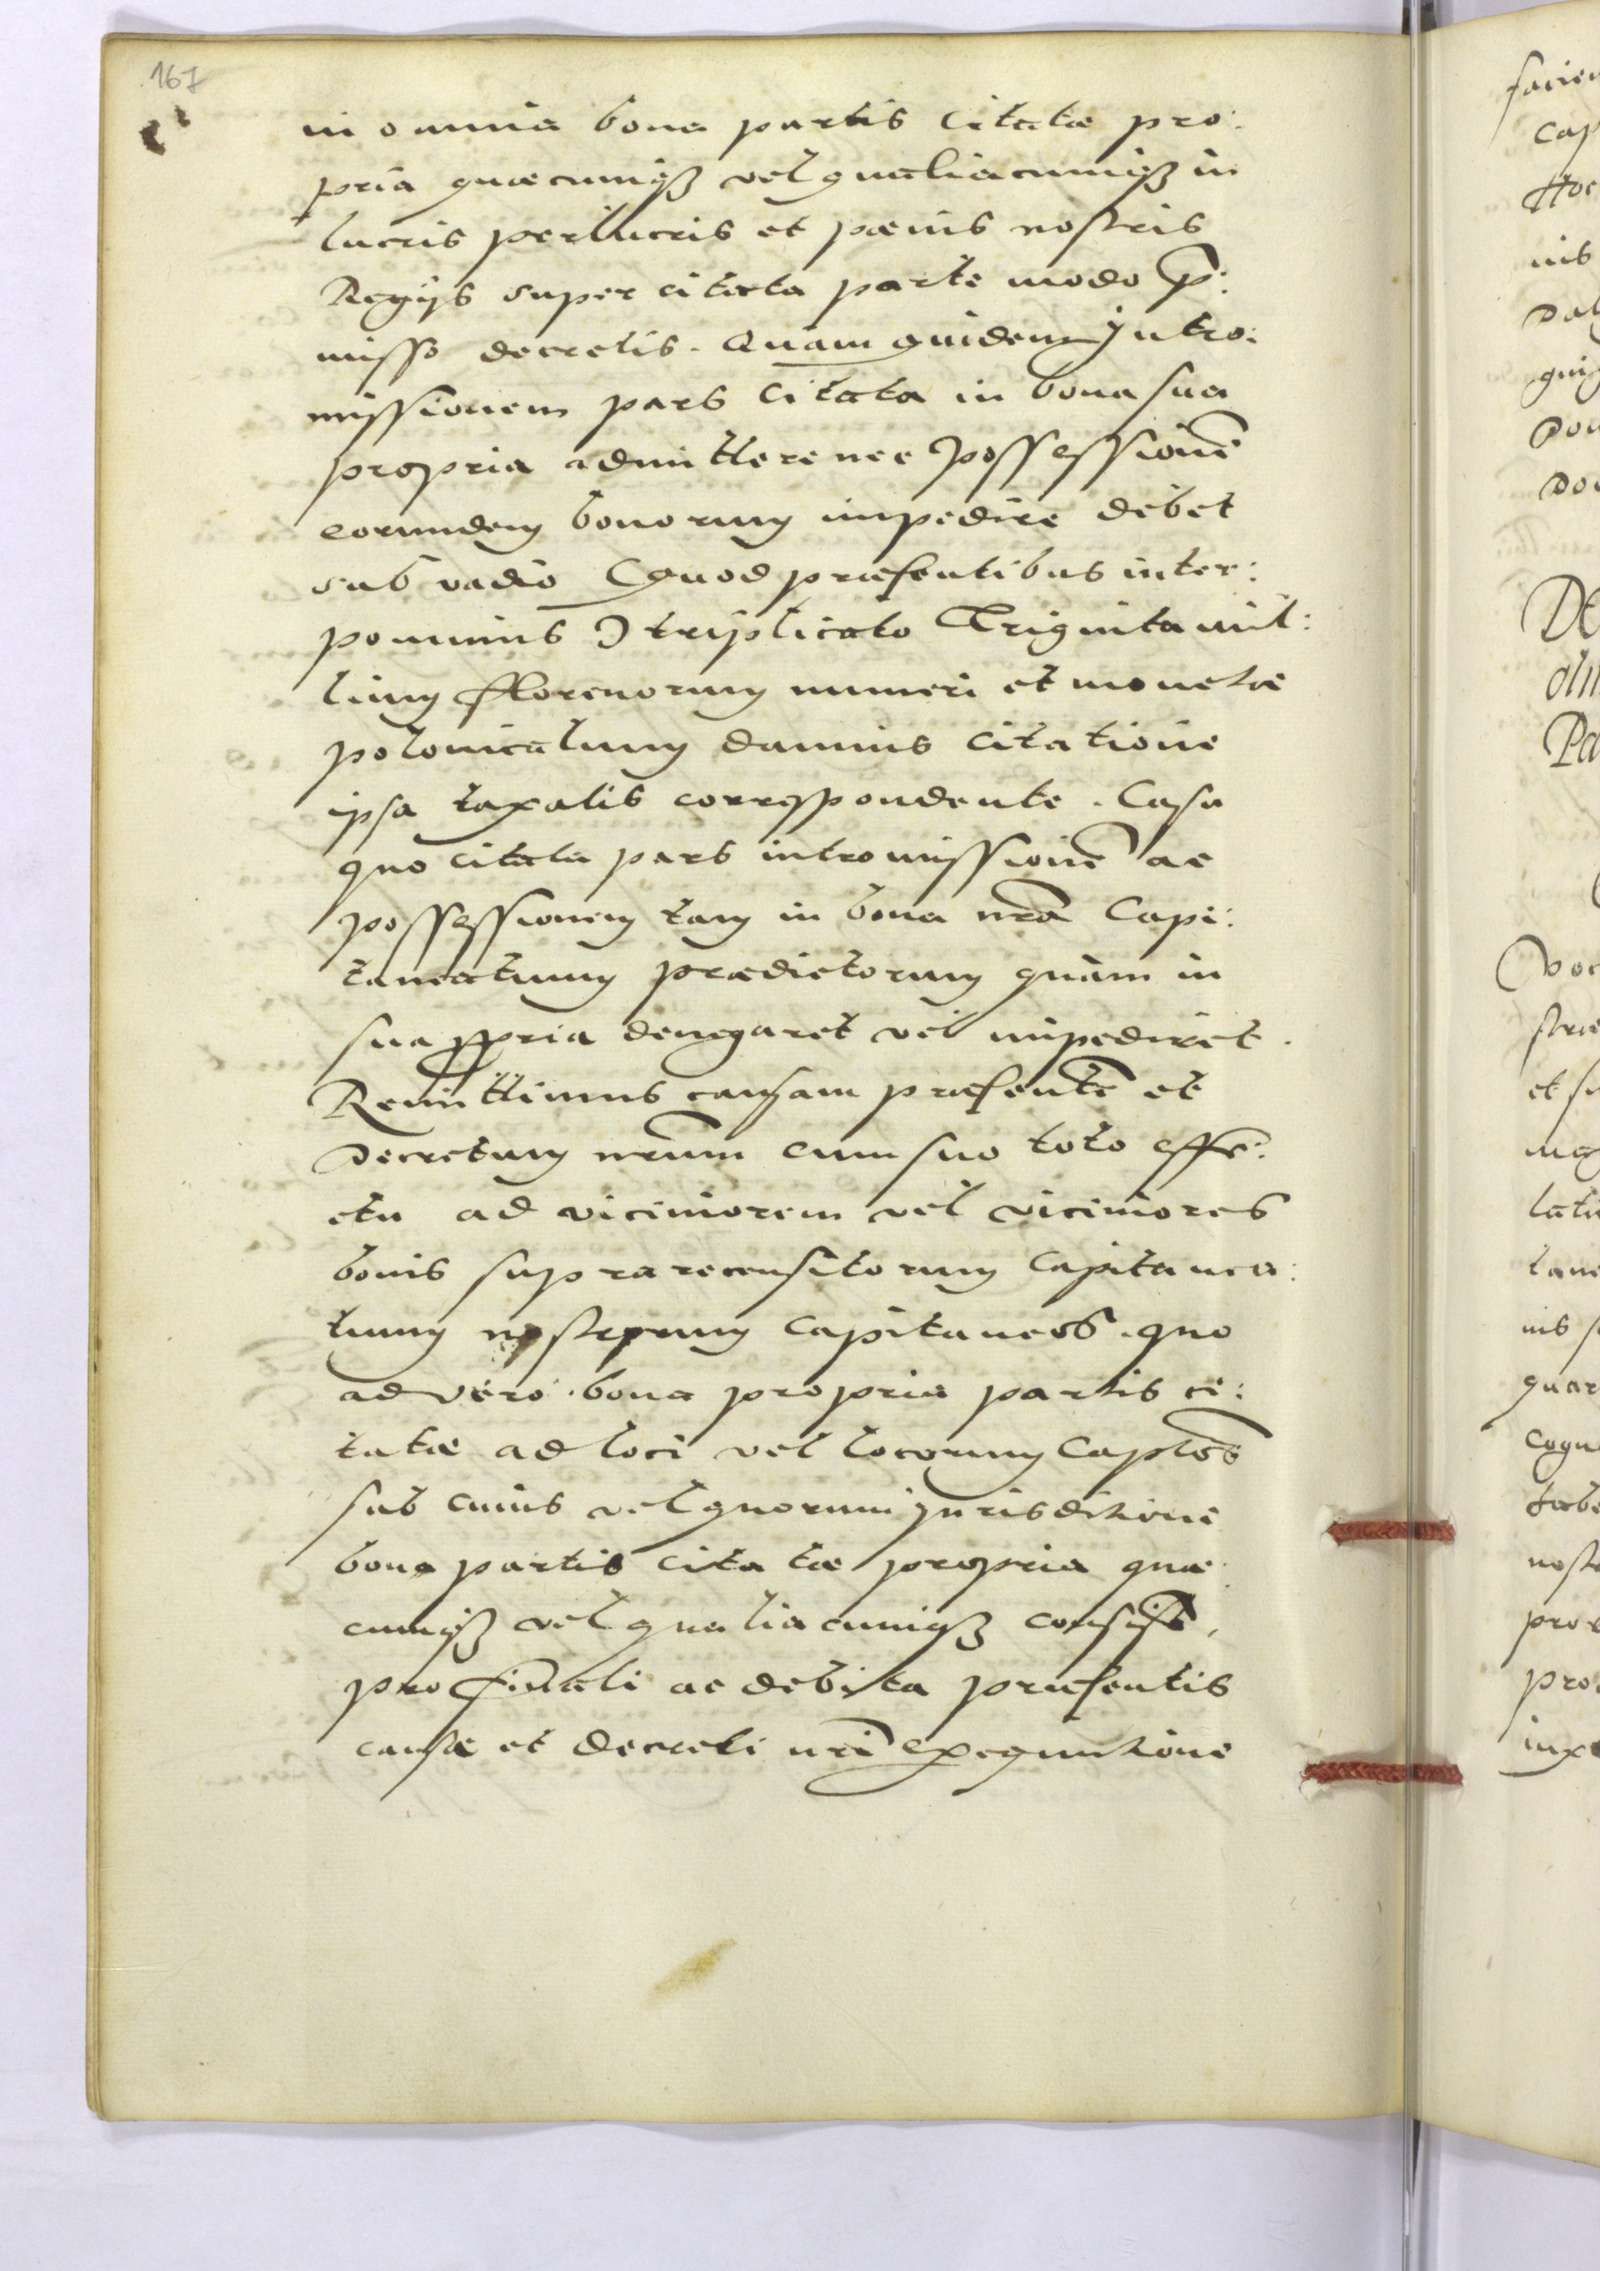 167
in omnia bona partis Citatæ pro:
pria quæcunqꝫ vel qualiacunqꝫ in
lucris perlucris et pænis nostris
Regÿs super citata parte modo p̃:
misso decretis. Quam quidem Intro:
missionem pars Citata in bona sua
propria admittere nec possessionẽ
eorundem bonorum impedire debet
sub vadio Quod præsentibus inter:
ponimus triplicato Triginta mil:
lium florenorum numeri et monetæ
polonicalium damnis citatione
ipsa taxatis correspondente. Casu
quo citata pars intromissionẽ ac
possessionem tam in bona nrã Capi:
taneatuum prædictorum quam in
sua ppria denegaret vel impediret.
Remittimus causam præsentẽ et
Decretum nrũm cum suo toto effe:
ctu ad viciniorem vel viciniores
bonis suprarecensitorum Capitanea:
tuum nostrorum Capitaneos. quo
ad vero bona propria partis ci:
tatæ ad loci vel locorum Captõs
sub cuius vel quorum jurisditione
bona partis citatæ propria quæ
cunqꝫ vel qualiacunqꝫ consist̃,
pro finali ac debita præsentis
causæ et decreti nrĩ exequutione